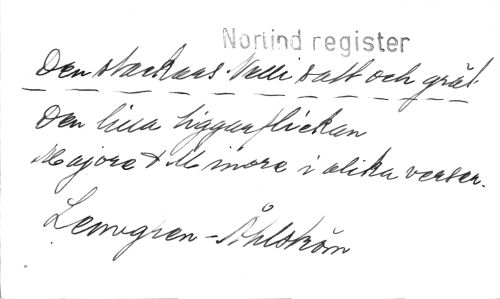 Nortind register
Den stackars Nelli satt och grät
Den lilla tiggarflickan
Majore & Minore i olika verser.
Lenngren - Åhlström